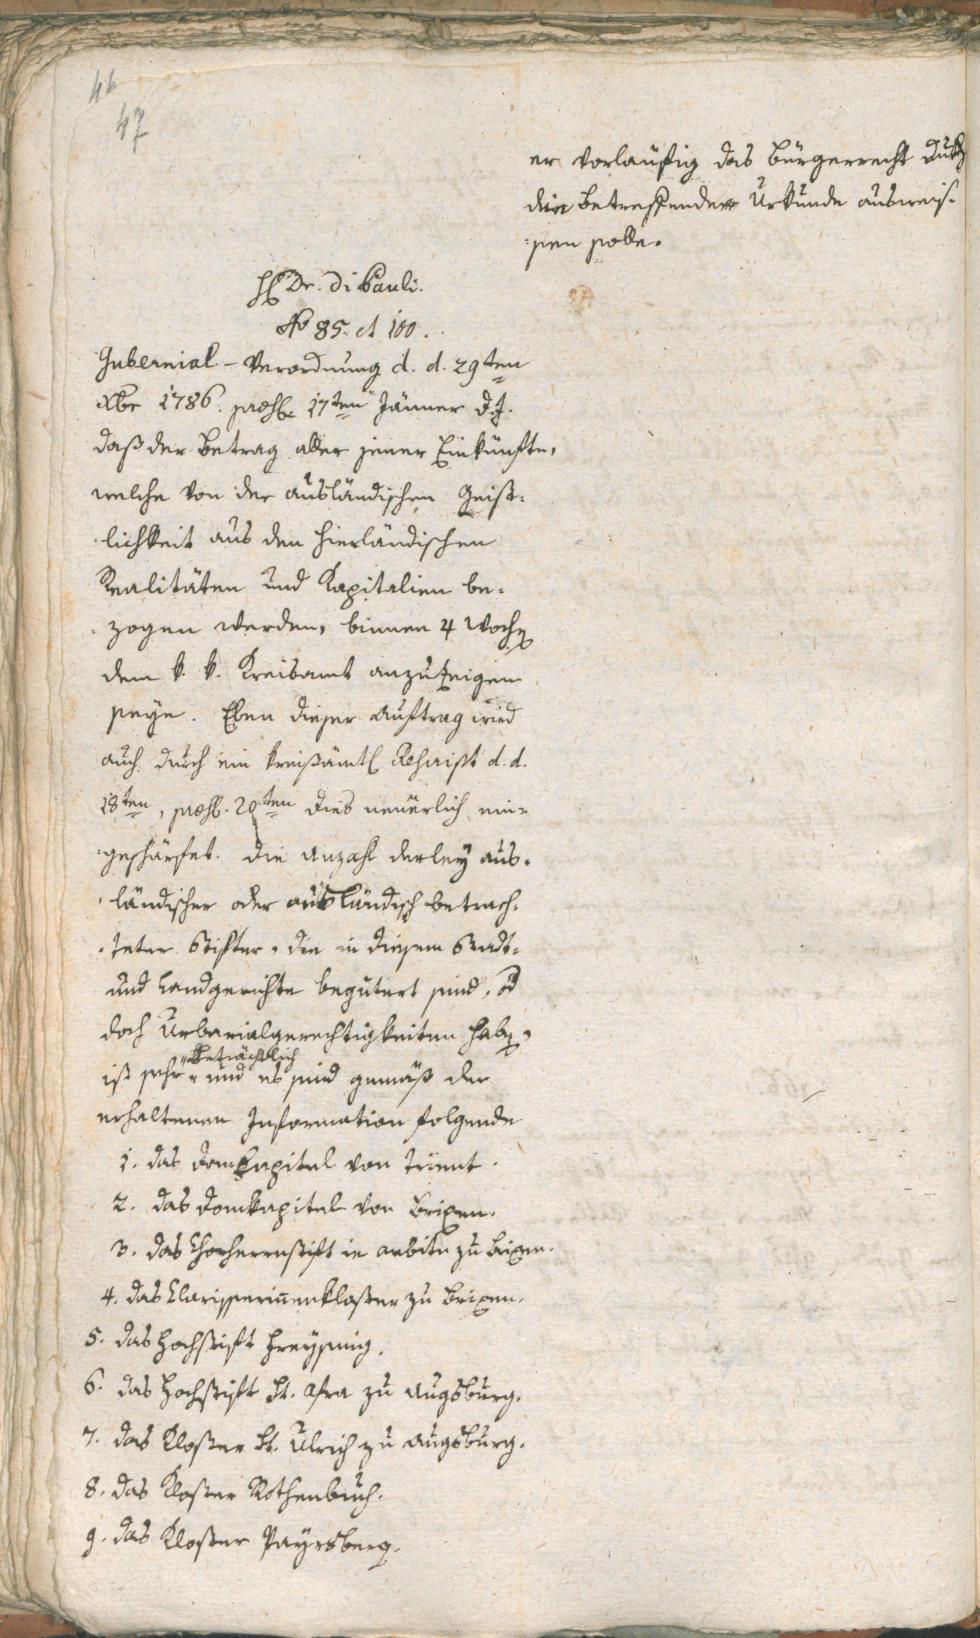 46
47
er vorläufig das Bürgerrecht durch
die betreffenden Urkunde ausweis-
sen solle.
H Dr. Di Pauli.
No 85. et 100.
Gubernial-Verordnung d. d. 29ten
Xbr 1786. praes. 17ten Jänner d. J.
daß der Betrag aller jener Einkünfte,
welche von der ausländischen Geist-
lichkeit aus den hierländischen
Realitäten und Kapitalien be-
zogen werden, binnen 4 Wochen
dem k. k. Kreisamt anzuzeigen
seye. Eben dieser Auftrag wird
auch durch ein kreisämtl. Rescript d. d.
18ten, praes. 20ten dies neuerlich ein-
geschärfet. Die Anzahl derley aus-
ländischer oder ausländisch betrach-
teter Stifter, die in diesem Stadt-
und Landgerichte begütert sind, od
doch Urbarialgerechtigkeiten haben,
beträchtlich
ist sehr und es sind gemäß der
erhaltenen Information folgende
1. das Domkapitel von Trient.
2. das Domkapitel von Brixen.
3. das Chorherrenstift in ambitu zu Brixen.
4. das Clarisserinnenkloster zu Brixen.
5. das Hochstift Freysing.
6. das Hochstift St. Afra zu Augsburg.
7. das Kloster St. Ulrich zu Augsburg.
8. das Kloster Rothenbuch.
9. das Kloster Payrsberg.